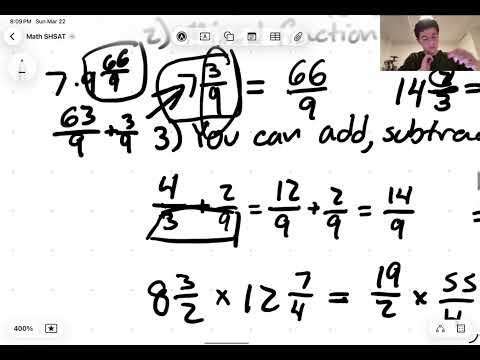 8:09 PM Sun Mar 22
Math SHSAT
2) fraction
7·9 66/9 7 3/9 = 66/9 14 2/3 =
63/9 + 3/9 3) You can add, subtrac
4/3 + 2/9 = 12/9 + 2/9 = 14/9 =
8 3/2 × 12 7/4 = 19/2 × 55/4
400%